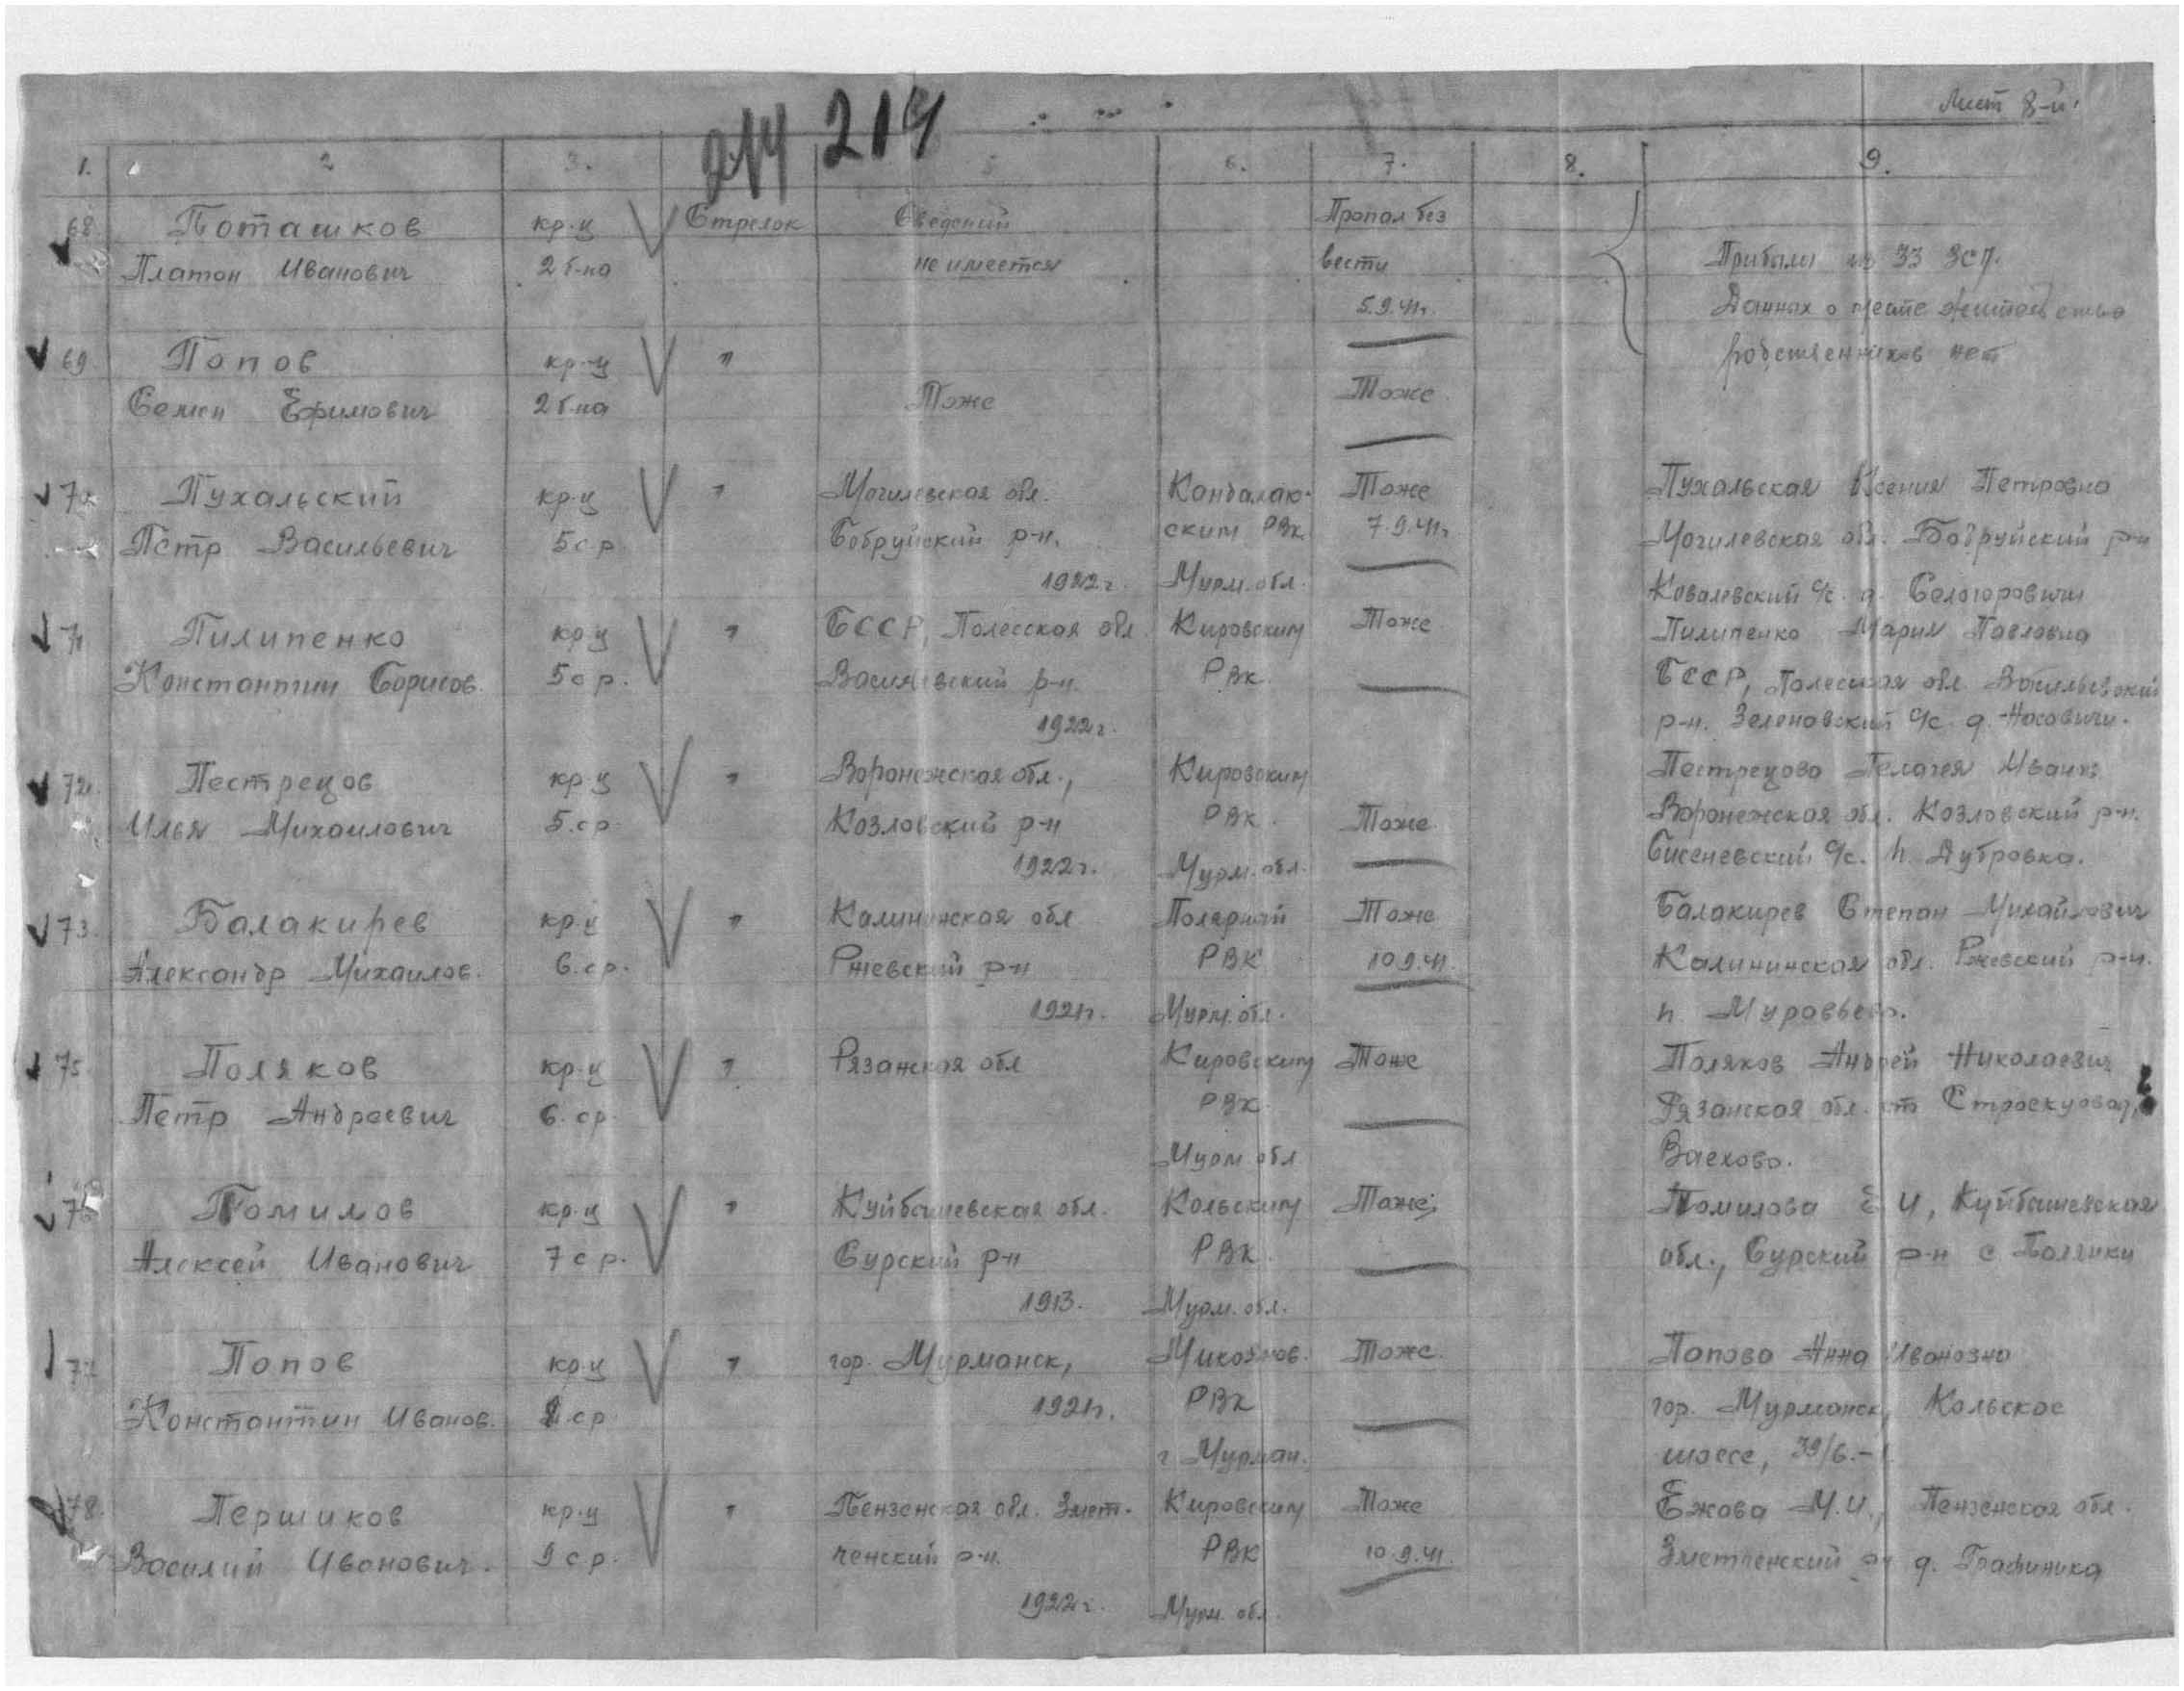 Лист 8-й.
214 214
1. 2 3. 5 6. 7. 8. 9.
68 Поташков кр-ц Стрелок Сведений Пропал без
Платон Иванович 2 б-на не имеется вести Прибыли из 33 ЗСП.
5.9.41г. Данных о месте жительства
69 Попов кр-ц " родственников нет
Семен Ефимович 2 б-на Тоже Тоже
Пухальский кр-ц " Могилевская обл. Кандалак- Тоже Пухальская Ксения Петровна
Петр Васильевич 5 ср Бобруйский р-н. ским РВК 7.9.41г Могилевская обл. Бобруйский р-н
1922г. Мурм. обл. Ковалевский с/с. д.
71 Пилипенко кр-ц " БССР, Полесская обл Кировским Тоже Пилипенко Мария Павловна
Константин Борисов. 5 ср. Василевский р-н. РВК. БССР, Полесская обл Васильевский
1922г. р-н. Зеленовский с/с. д. Носовичи.
72. Пестрецов кр-ц " Воронежская обл., Кировским Пестрецова Пелагея Иванов
Илья Михаилович 5. ср. Козловский р-н РВК. Тоже Воронежская обл. Козловский р-н.
1922г. Мурм. обл. с/с. п. Дубровка.
73. Балакирев кр-ц " Калининская обл Полярный Тоже Балакирев Степан Михайлович
Александр Михаилов. 6. ср. Ржевский р-н РВК 10.9.41. Калининская обл. Ржевский р-н.
1921г. Мурм. обл. п. Муравьево.
75 Поляков кр-ц " Рязанская обл Кировским Тоже Поляков Андрей Николаевич
Петр Андреевич 6. ср. РВК. Рязанская обл. ст
Мурм обл
76 Помилов кр-ц " Куйбашевская обл. Кольским Тоже; Помилова Е И, Куйбашевская
Алексей Иванович 7 ср. Сурский р-н РВК. обл., Сурский р-н с
1913. Мурм. обл.
77 Попов кр-ц " гор. Мурманск, Микоянов. Тоже. Попова Анна Ивановна
Константин Иванов. ср 1921г. РВК гор. Мурманск, Кольское
г Мурман. шоссе, 39/6.-1
78. Першиков кр-ц " Пензенская обл. Змет- Кировским Тоже Ежова М.И., Пензенская обл.
Василий Иванович. 9 ср. ченский р-н. РВК 10.9.41. Зметченский р-н д.
1922г. Мурм. обл.